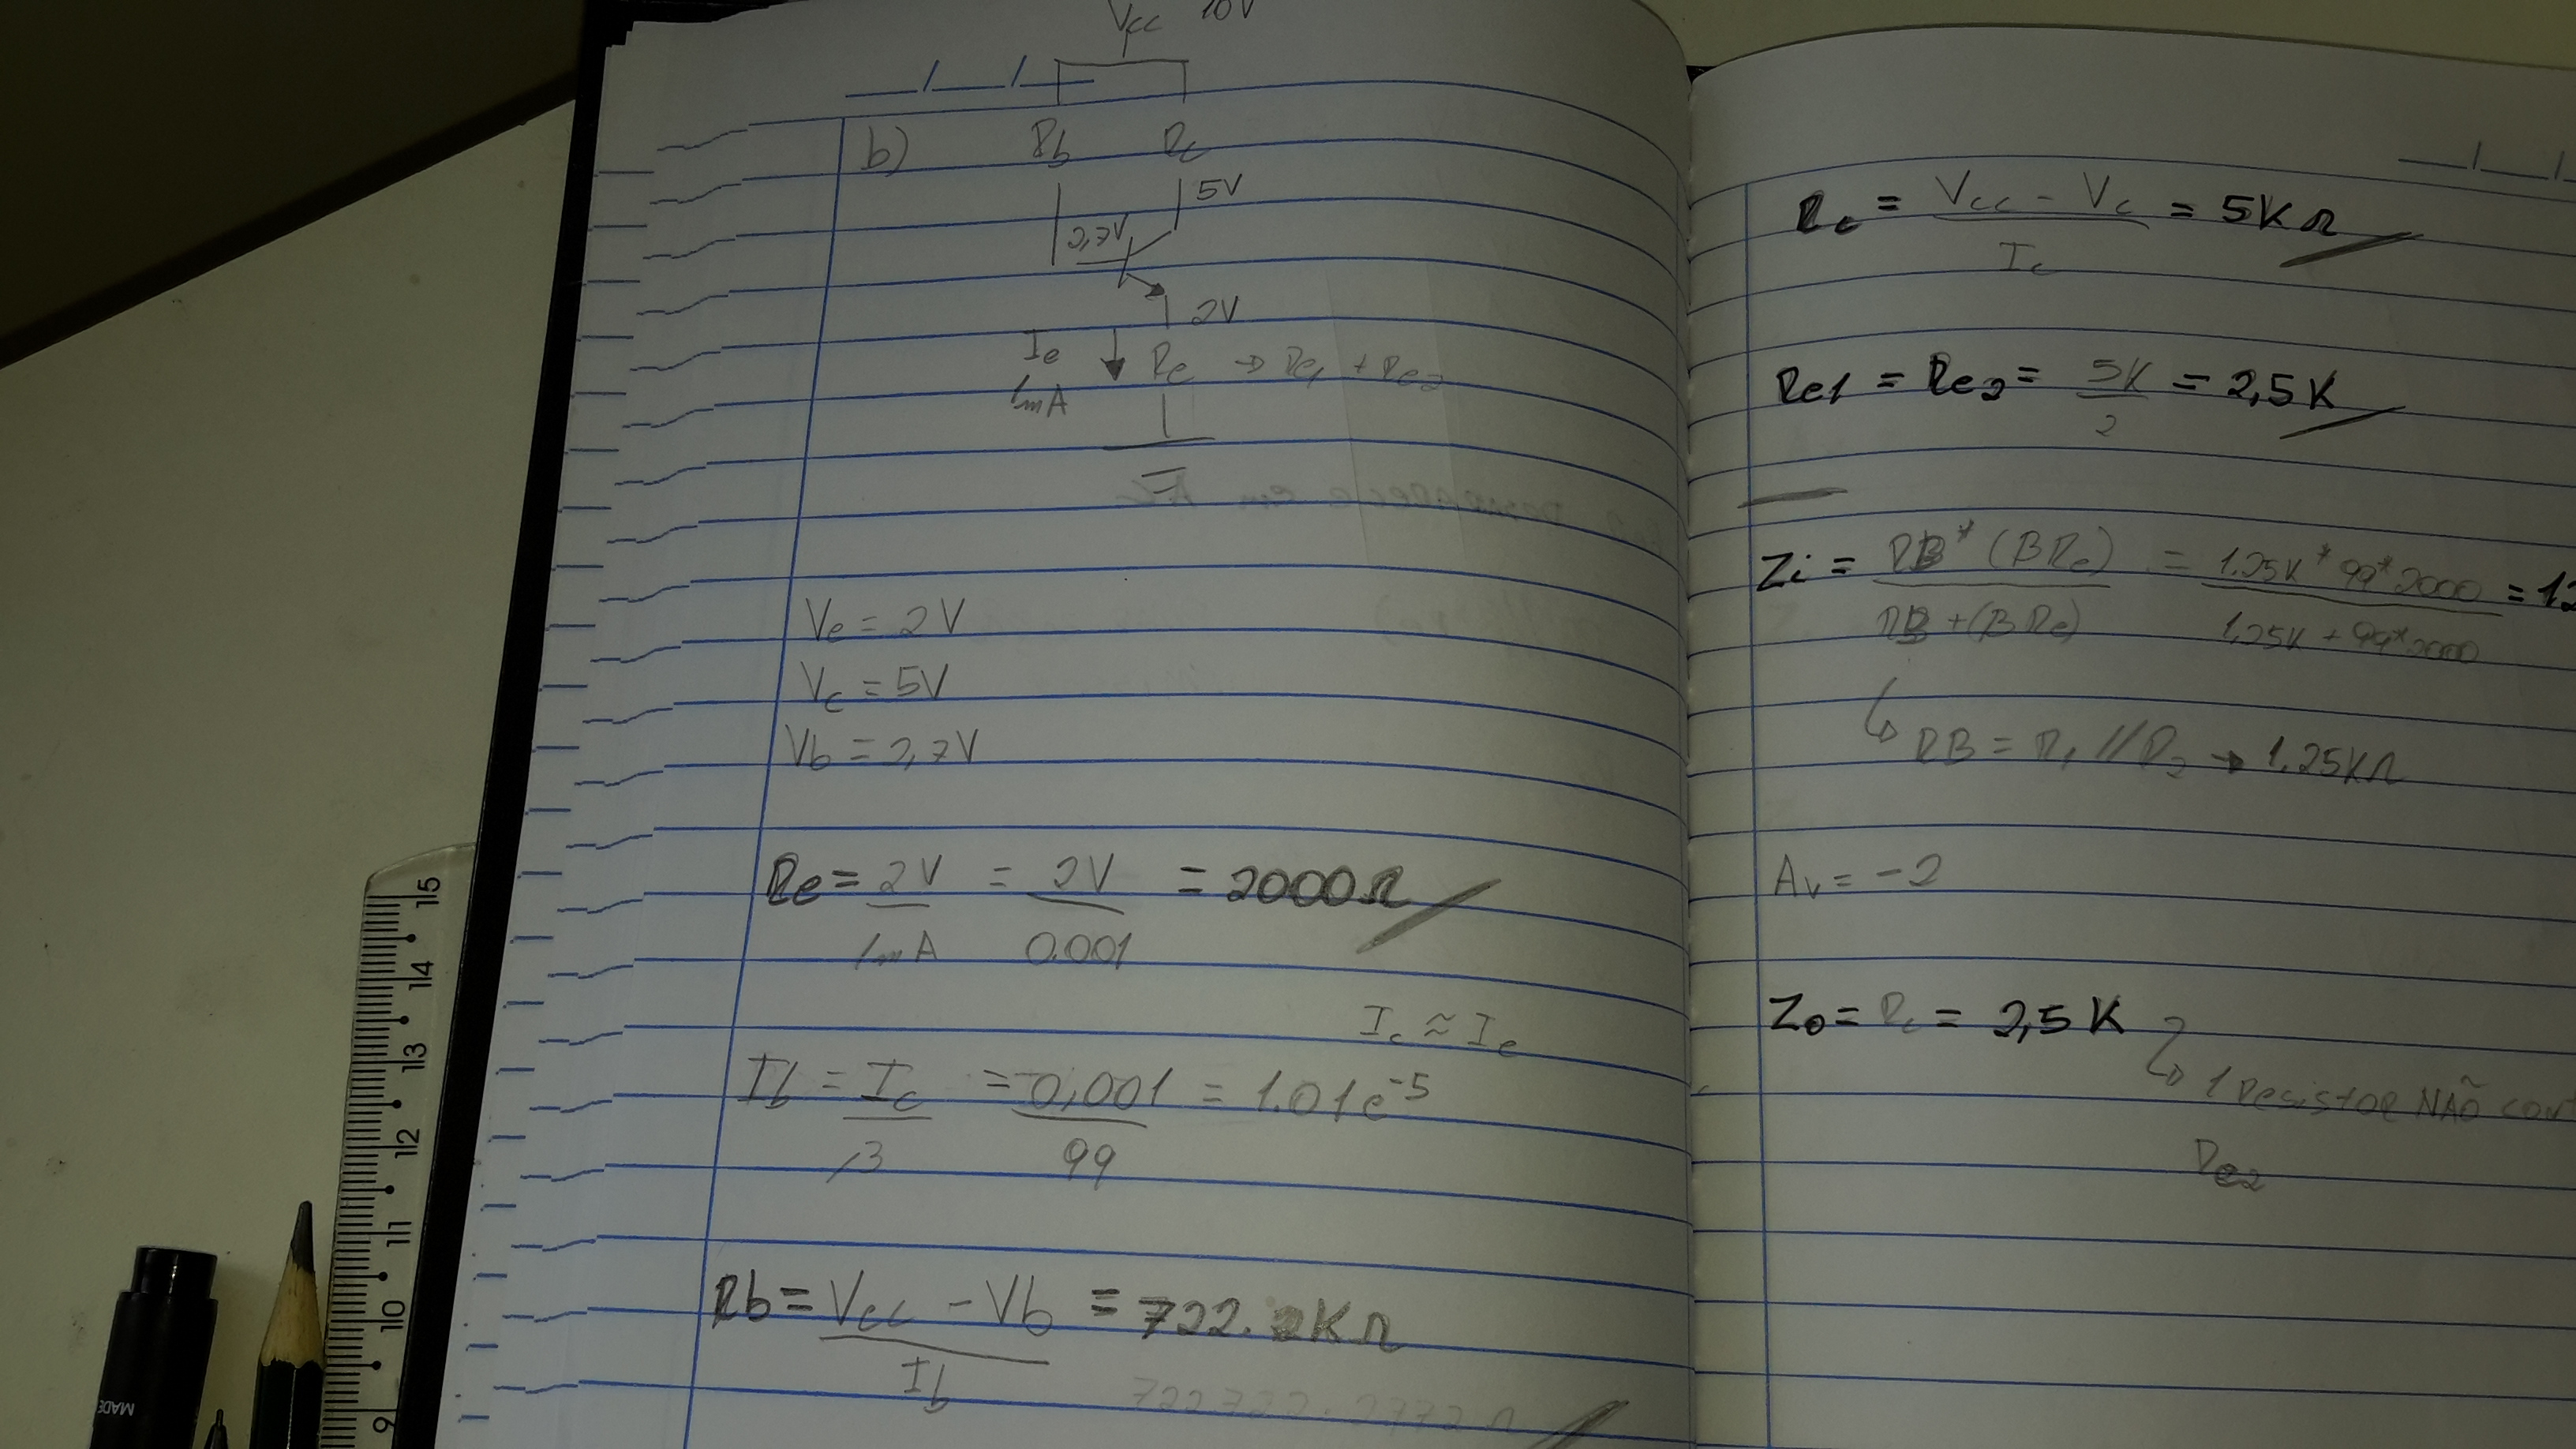 Vcc 10V
b) Rb Rc
5V
2,7V
2V
Ie Re → Re1 + Re2
1mA
Ve = 2V
Vc = 5V
Vb = 2,7V
Re = 2V / 1mA = 2V / 0.001 = 2000Ω
Ic ≈ Ie
Ib = Ic / β = 0,001 / 99 = 1.01e⁻⁵
Rb = Vcc - Vb / Ib = 722.2KΩ
Rc = Vcc - Vc / Ic = 5KΩ
Re1 = Re2 = 5K / 2 = 2,5K
Zi = RB * (BRe) / RB + (BRe) = 1.25K * 99 * 2000 / 1,25K + 99*2000
RB = R1 // R2 → 1.25KΩ
Av = -2
Zo = Rc = 2,5K
1 Resistor NÃO
Re2
MADE
15
14
13
12
11
10
9